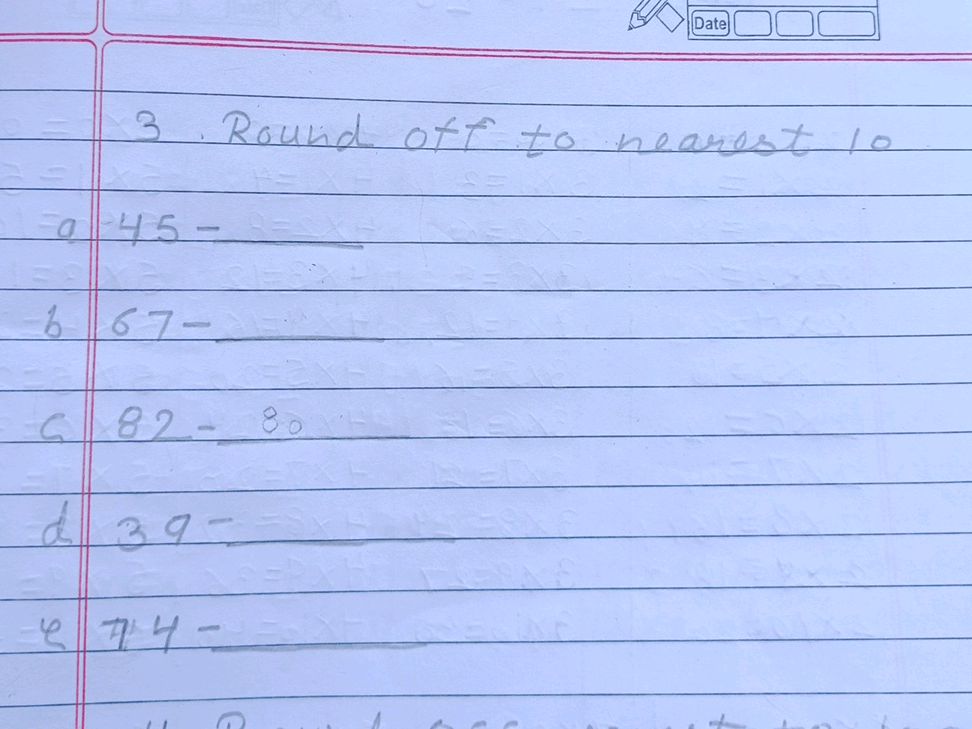 Date
3. Round off to nearest 10
a 45 - ______
b 67 - ______
c 82 - 80
d 39 - ______
e 74 - ______